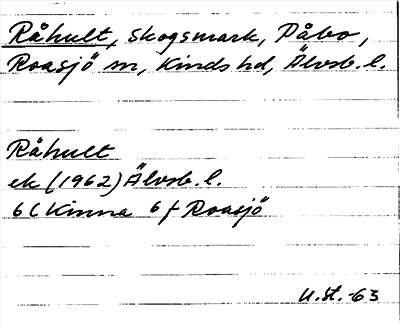 Råhult, skogsmark, Påbo,
Roasjö sn, Kinds hd, Älvsb. l.
Råhult
ek (1962) Älvsb. l.
6C Kinna 6f Roasjö
U.St.-63